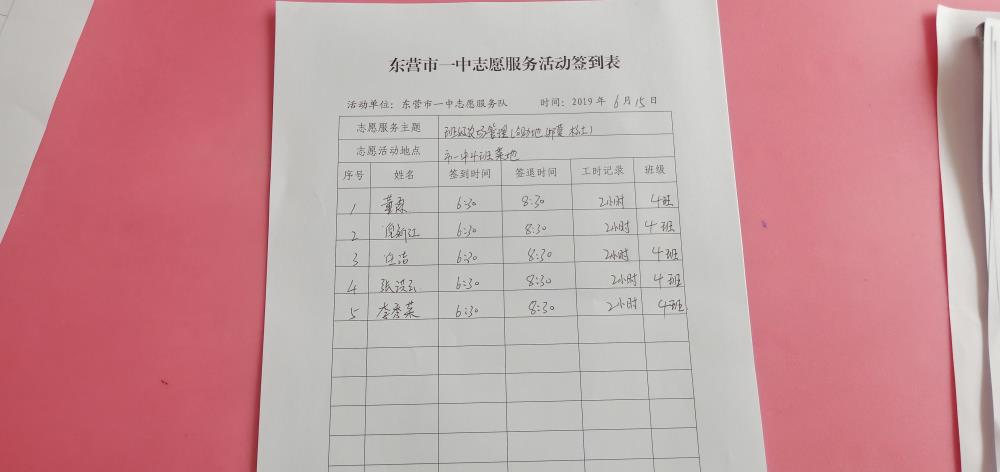 东营市一中志愿服务活动签到表
活动单位：东营市一中志愿服务队 时间：2019 年 6 月 15 日
志愿服务主题 班级农场管理
志愿活动地点 市一中4班菜地
序号 姓名 签到时间 签退时间 工时记录 班级
1 6:30 8:30 2小时 4班
2 6:30 8:30 2小时 4班
3 6:30 8:30 2小时 4班
4 6:30 8:30 2小时 4班
5 李秀菜 6:30 8:30 2小时 4班